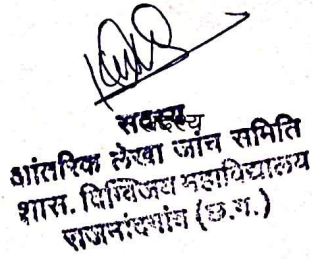 सदस्य
आंतरिक लेखा जांच समिति
शास. दिग्विजय महाविद्यालय
राजनांदगांव (छ.ग.)